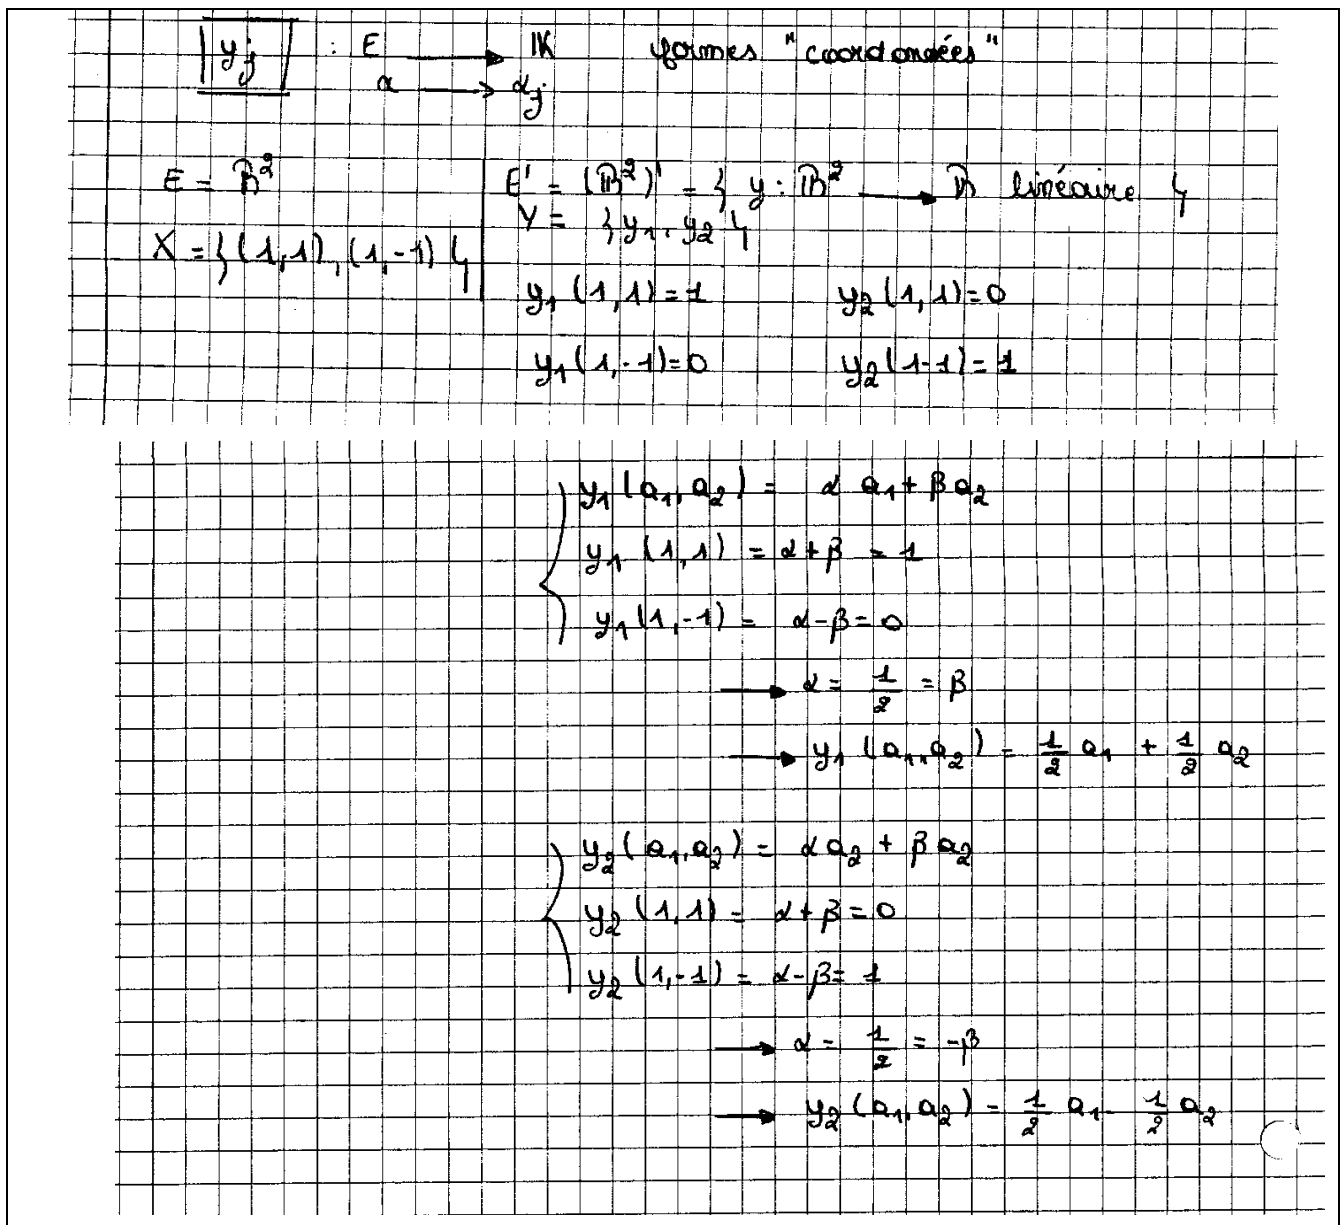 y_j : E ⟶ 𝕂 formes "coordonnées"
x ⟶ α_j
E = ℝ² | E' = (ℝ²)' = { y : ℝ² ⟶ ℝ linéaire }
Y = { y₁, y₂ }
X = { (1,1), (1,-1) }
y₁ (1,1) = 1 y₂ (1,1) = 0
y₁ (1,-1) = 0 y₂ (1-1) = 1
y₁ (a₁, a₂) = α a₁ + β a₂
y₁ (1,1) = α + β = 1
y₁ (1,-1) = α - β = 0
⟶ α = 1/2 = β
⟶ y₁ (a₁, a₂) = 1/2 a₁ + 1/2 a₂
y₂ (a₁, a₂) = α a₂ + β a₂
y₂ (1,1) = α + β = 0
y₂ (1,-1) = α - β = 1
⟶ α = 1/2 = -β
⟶ y₂ (a₁, a₂) = 1/2 a₁ - 1/2 a₂